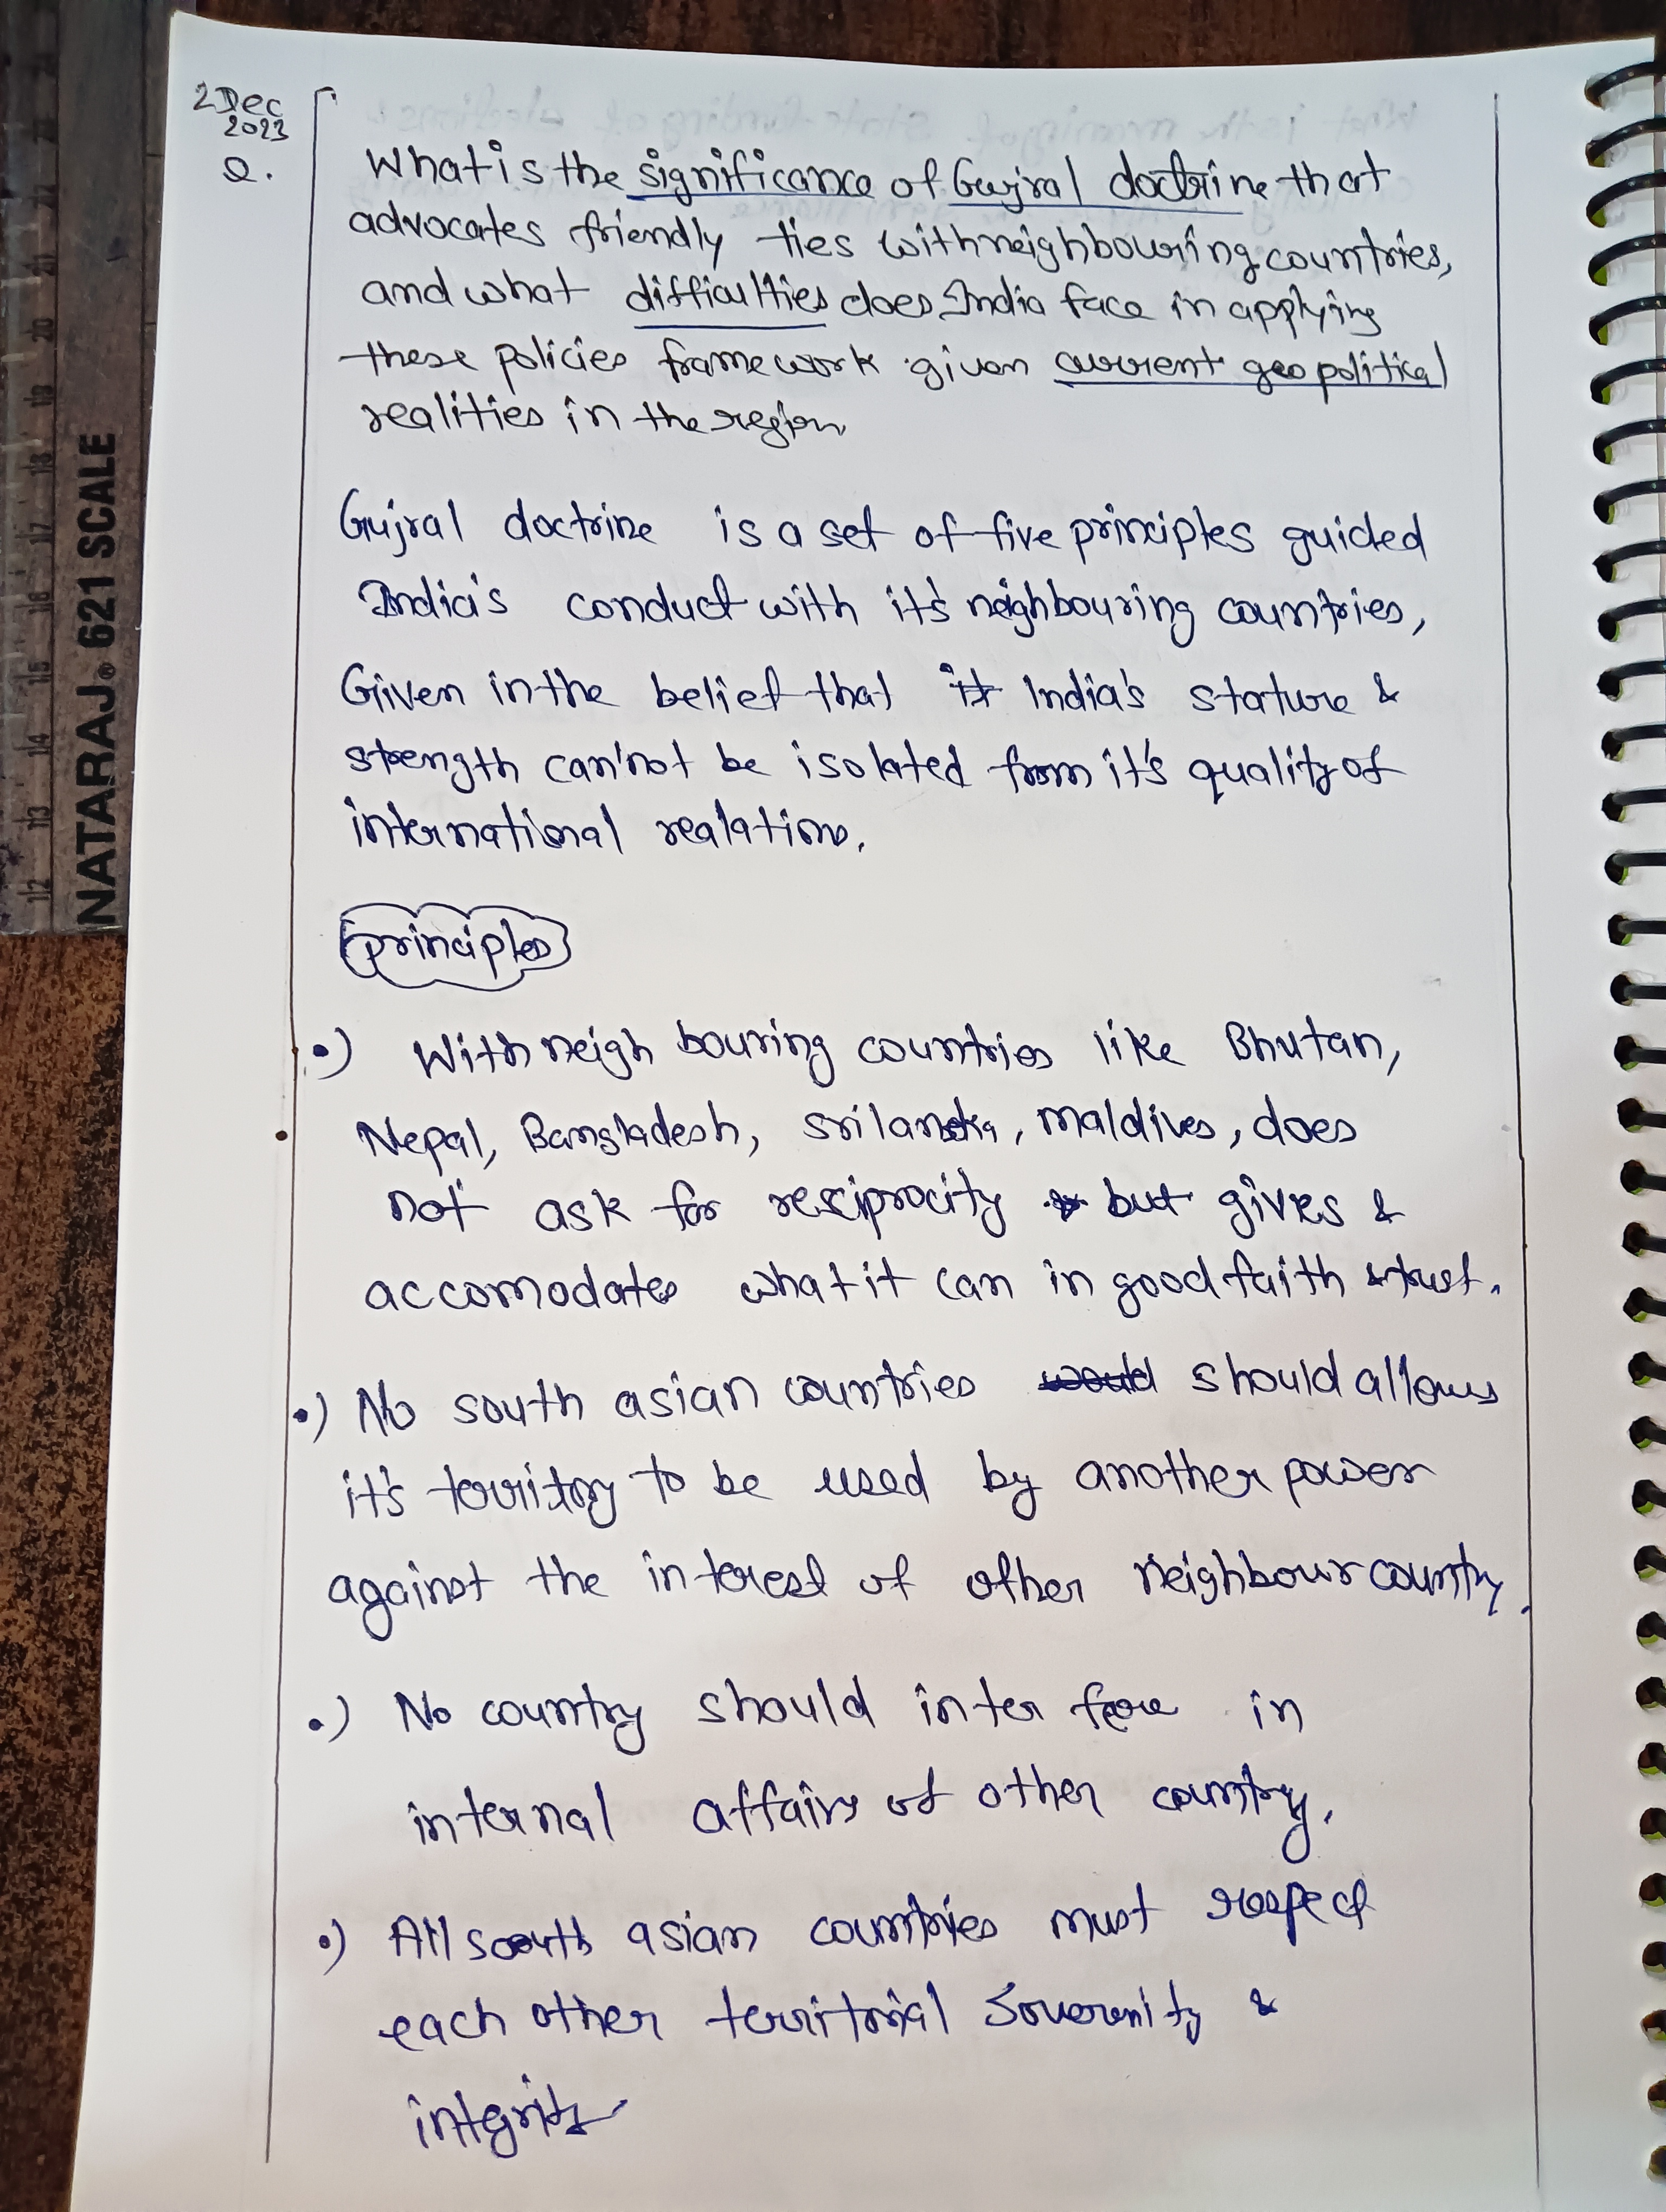 2 Dec
2023
Q.
What is the significance of Gujral doctrine that
advocates friendly ties with neighbouring countries,
and what difficulties does India face in applying
these policies framework given current geo political
realities in the region
Gujral doctrine is a set of five principles guided
India's conduct with it's neighbouring countries,
Given in the belief that it India's stature &
strength can'not be isolated from it's quality of
international realations.
principles
•) With neighbouring countries like Bhutan,
Nepal, Bangladesh, srilanka, maldives, does
not ask for resciprocity but gives &
accomodates what it can in good faith & trust.
•) No south asian countries would should allows
it's territory to be used by another power
against the interest of other neighbour country.
•) No country should interfere in
internal affairs of other country.
•) All south asian countries must respect
each other territorial soverenity &
integrity
NATARAJ® 621 SCALE
12 13 14 15 16 17 18 19 20 21